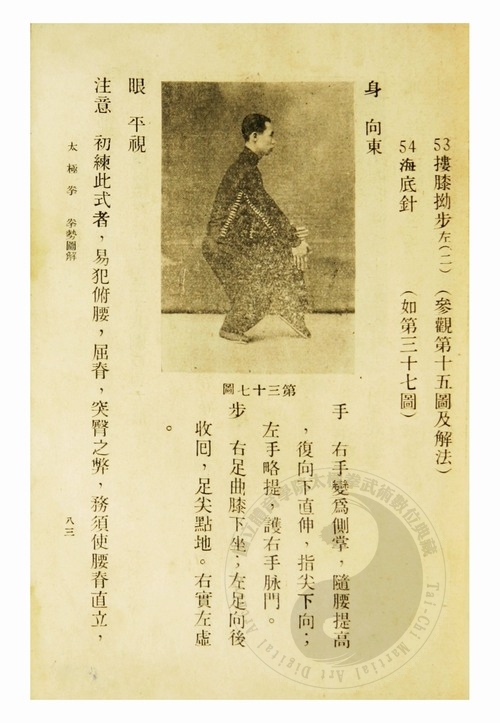 53摟膝拗步左(二)　(參觀第十五圖及解法)
54海底針　(如第三十七圖)
身　向東
手　右手變為側掌，隨腰提高
，復向下直伸，指尖下向；
左手略提，護右手脉門。
步　右足曲膝下坐；左足向後
收回，足尖點地。右實左虛
。
圖七十三第
眼　平視
注意　初練此式者，易犯俯腰，屈脊，突臀之弊，務須使腰脊直立，
太極拳　拳勢圖解
八三
太極拳武術數位典藏
Tai-Chi Martial Art Digital